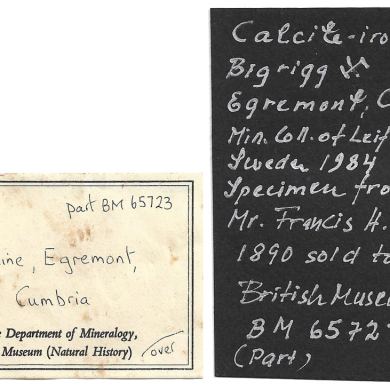 part BM 65723
ine, Egremont,
Cumbria
e Department of Mineralogy,
Museum (Natural History)
over
Calcite-iro
Bigrigg
Egremont, C
Min. Coll. of Leif
Sweden 1984
Specimen fro
Mr. Francis H.
1890 sold to
British Museu
BM 6572
(Part)